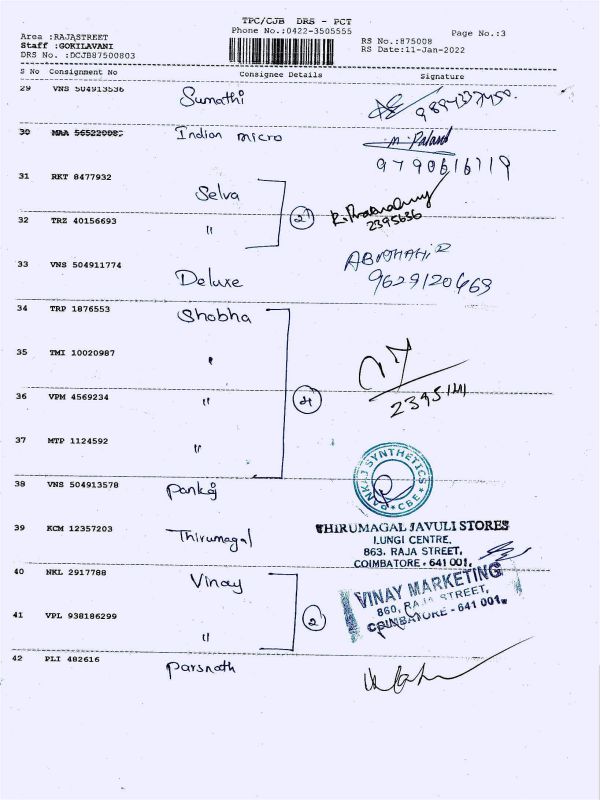 TPC/CJB DRS - PCT
Phone No.:0422-3505555
Page No.:3
Area :RAJASTREET
Staff :GOKILAVANI
DRS No. :DCJB87500803
RS No.:875008
RS Date:11-Jan-2022
S No Consignment No Consignee Details Signature
29 VNS 504913536 Sumathi
30 MAA Indian micro m. Paland
9790616119
31 RKT 8477932 Selva
2
2395636
32 TRZ 40156693 "
33 VNS 504911774 Deluxe
9629120469
34 TRP 1876553 Shobha
35 TMI 10020987 "
36 VPM 4569234 " 4
37 MTP 1124592 "
38 VNS 504913578 Pankaj
PANKAJ SYNTHETICS
CBE
39 KCM 12357203 Thirumagal
THIRUMAGAL JAVULI STORES
LUNGI CENTRE,
863. RAJA STREET,
COIMBATORE - 641 001.
40 NKL 2917788 Vinay
VINAY MARKETING
860, RAJA STREET,
COIMBATORE - 641 001.
41 VPL 938186299 " 2
42 PLI 482616 Parsnath